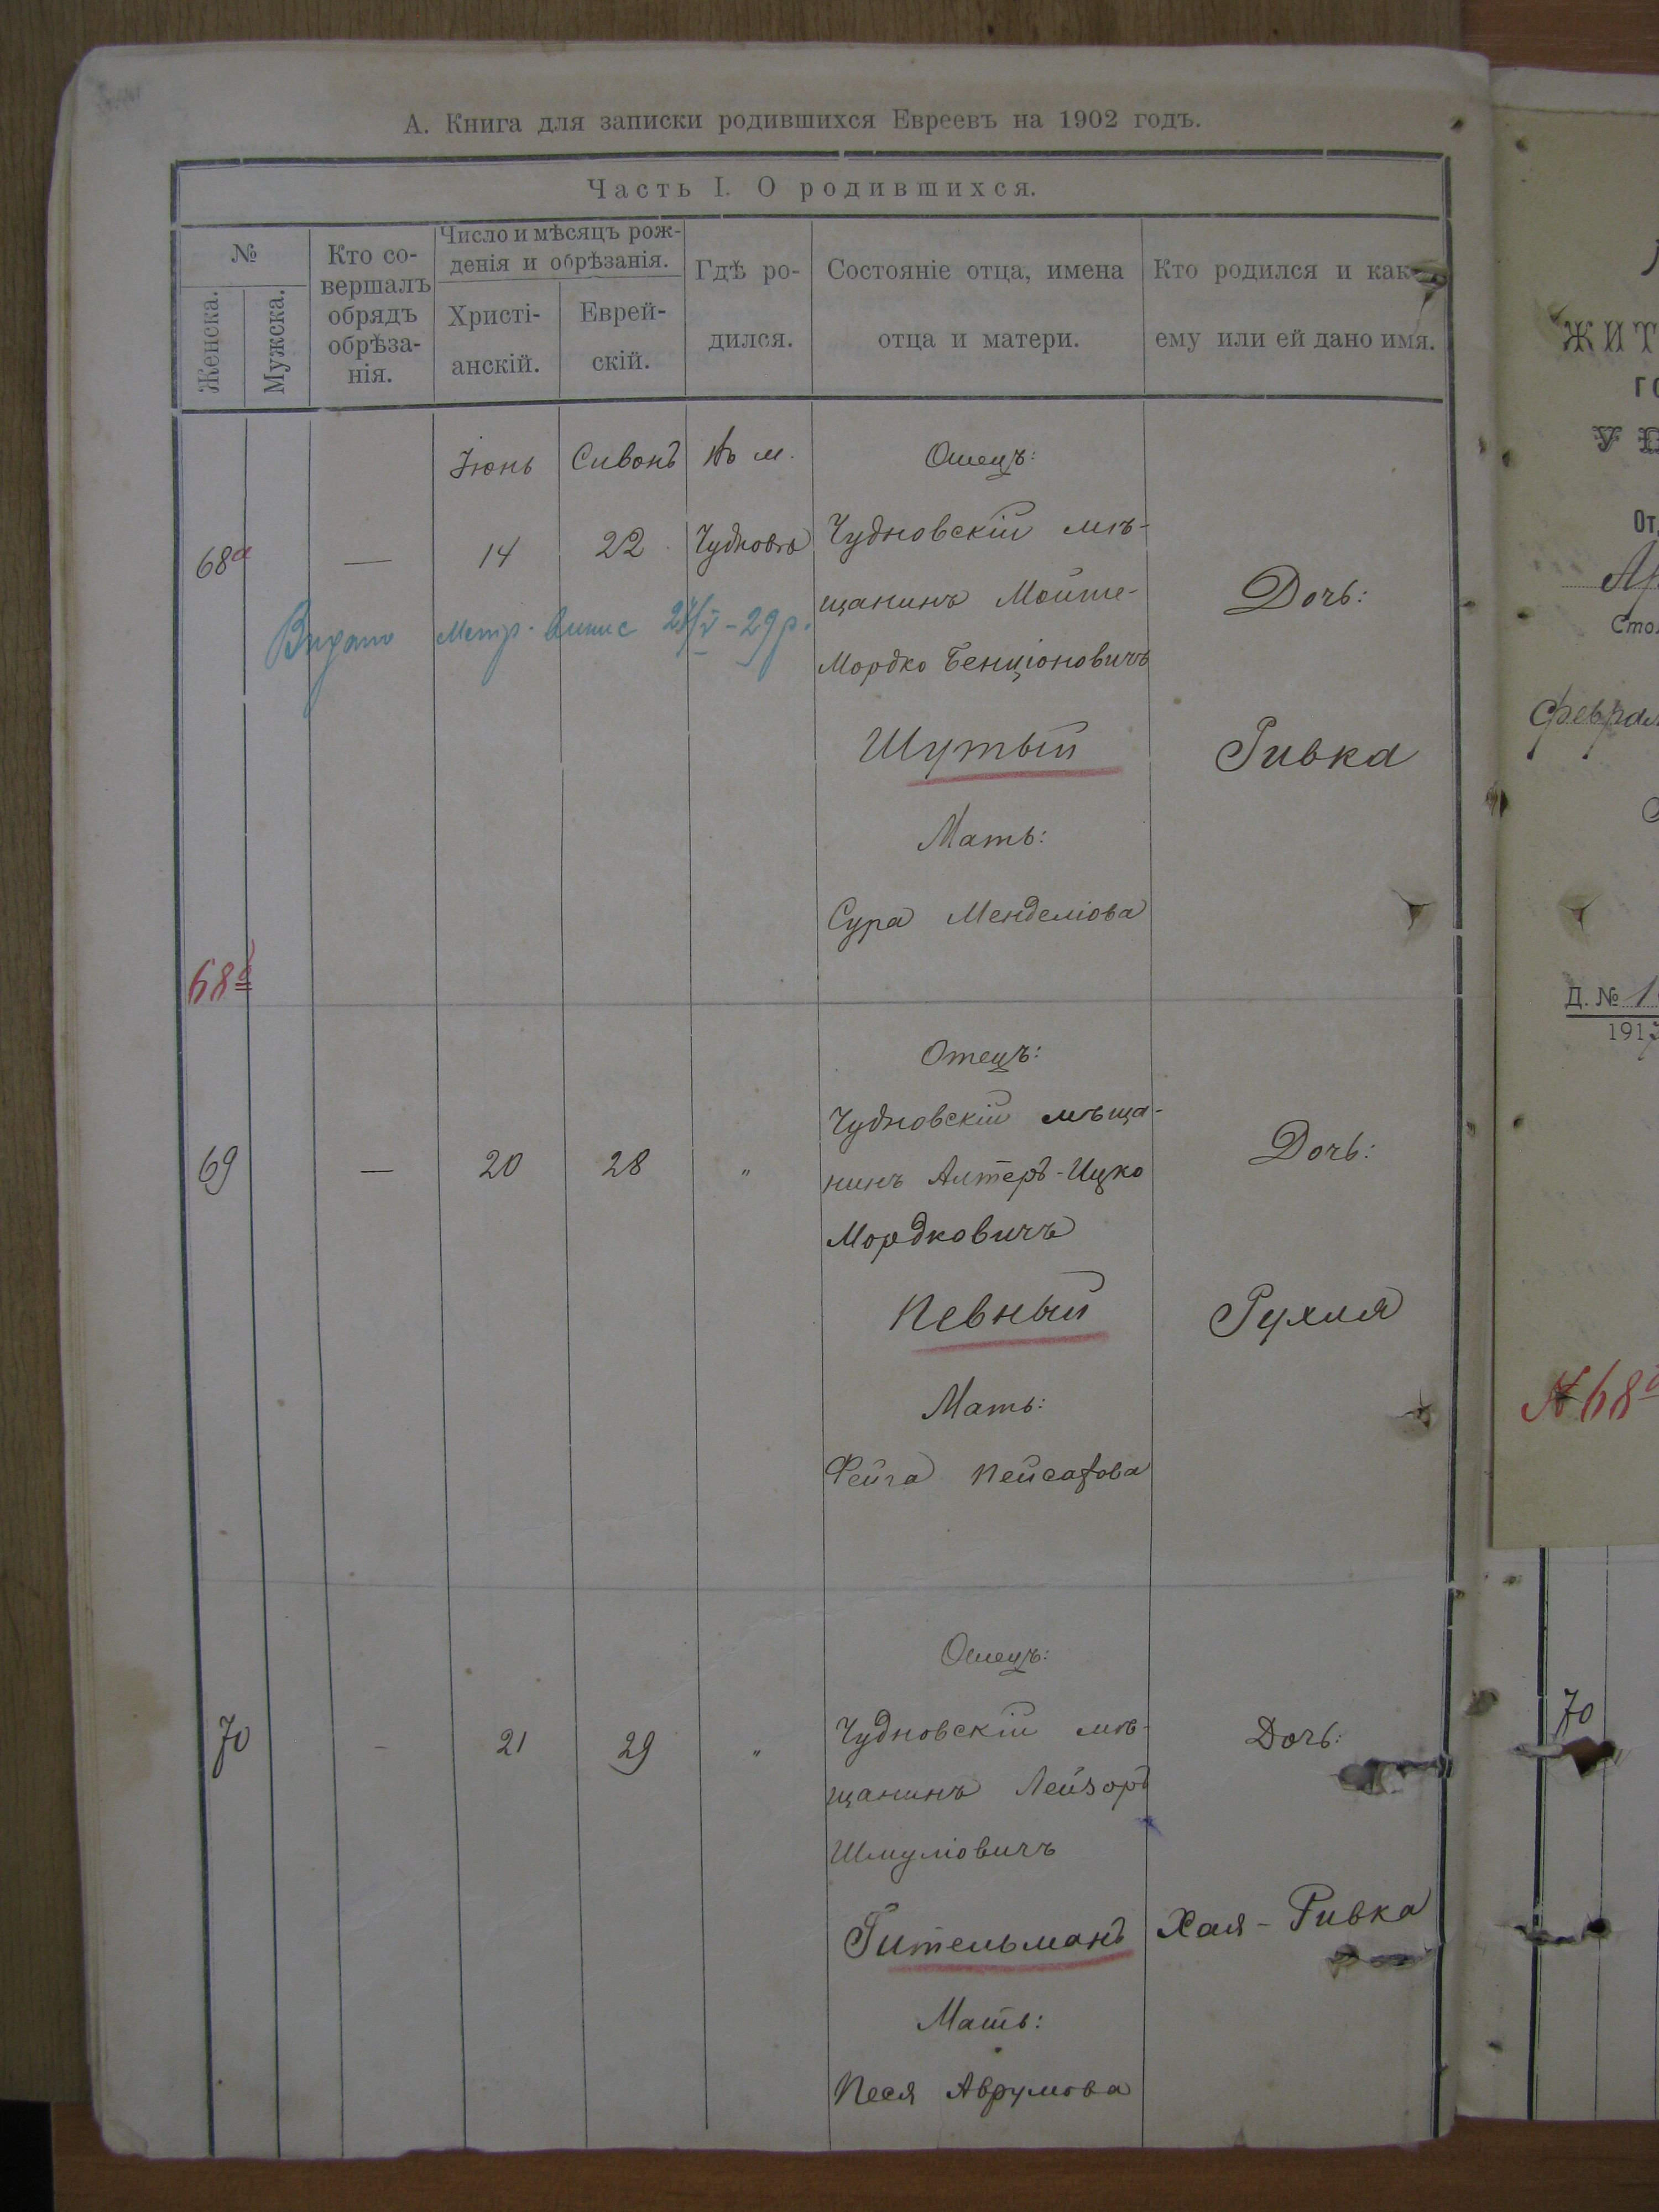 А. Книга для записки родившихся Евреевъ на 1902 годъ.
Часть I. О родившихся.
№
Женска.
Мужска.
Кто со-
вершалъ
обрядъ
обрѣза-
нія.
Число и мѣсяцъ рож-
денія и обрѣзанія.
Христі-
анскій.
Еврей-
скій.
Гдѣ ро-
дился.
Состояніе отца, имена
отца и матери.
Кто родился и как
ему или ей дано имя.
Іюнь
Сивонъ
Въ м.
Отецъ:
68а
—
14
22
Чудновѣ
Чудновскій мѣ-
щанинъ Мойше-
Мордко Бенціоновичъ
Шутый
Мать:
Сура Менделіова
Дочь:
Ривка
Видано Метр. випис 21/V - 29 р.
68б
69
—
20
28
"
Отецъ:
Чудновскій мѣща-
нинъ Алтеръ-Ицко
Мордковичъ
Певный
Мать:
Фейга Пейсахова
Дочь:
Рухля
70
-
21
29
"
Отецъ:
Чудновскій мѣ-
щанинъ Лейзоръ
Шмуліовичъ
Гительманъ
Мать:
Песя Аврумова
Дочь:
Хая-Ривка
ЖИТ
ГО
От
Сто
Феврал
Д. № 1
191
№ 68
70